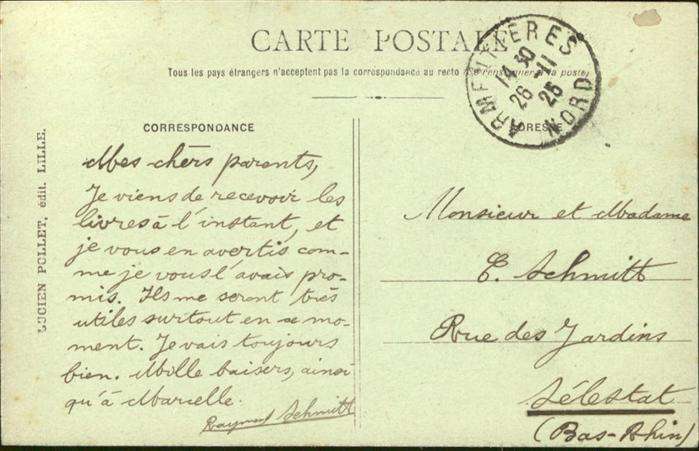 CARTE POSTALE
Tous les pays étrangers n'acceptent pas la correspondance au recto (se renseigner à la poste)
ARMENTIÈRES
14 30
26 - 11
25
NORD
CORRESPONDANCE
ADRESSE
LUCIEN POLLET, édit. LILLE.
Mes chers parents,
Je viens de recevoir les
livres à l'instant, et
je vous en avertis com-
me je vous l'avais pro-
mis. Ils me seront très
utiles surtout en ce mo-
ment. Je vais toujours
bien. Mille baisers, ainsi
qu'à Marcelle.
Raymond Schmitt
Monsieur et Madame
E. Schmitt
Rue des Jardins
Sélestat
(Bas-Rhin)